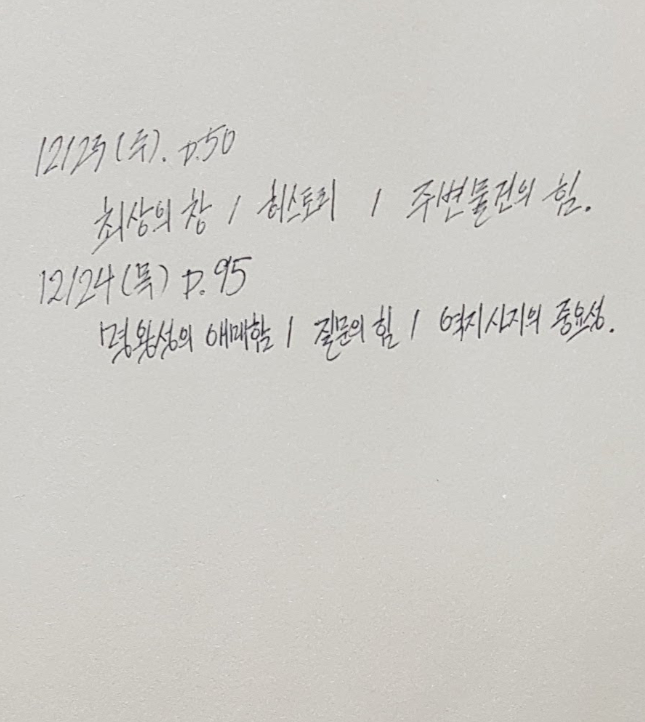 12/23(수). p.50
최상의 창 / 히스토리 / 주변물건의 힘.
12/24(목) p.95
명왕성의 애매함 / 질문의 힘 / 역지사지의 중요성.